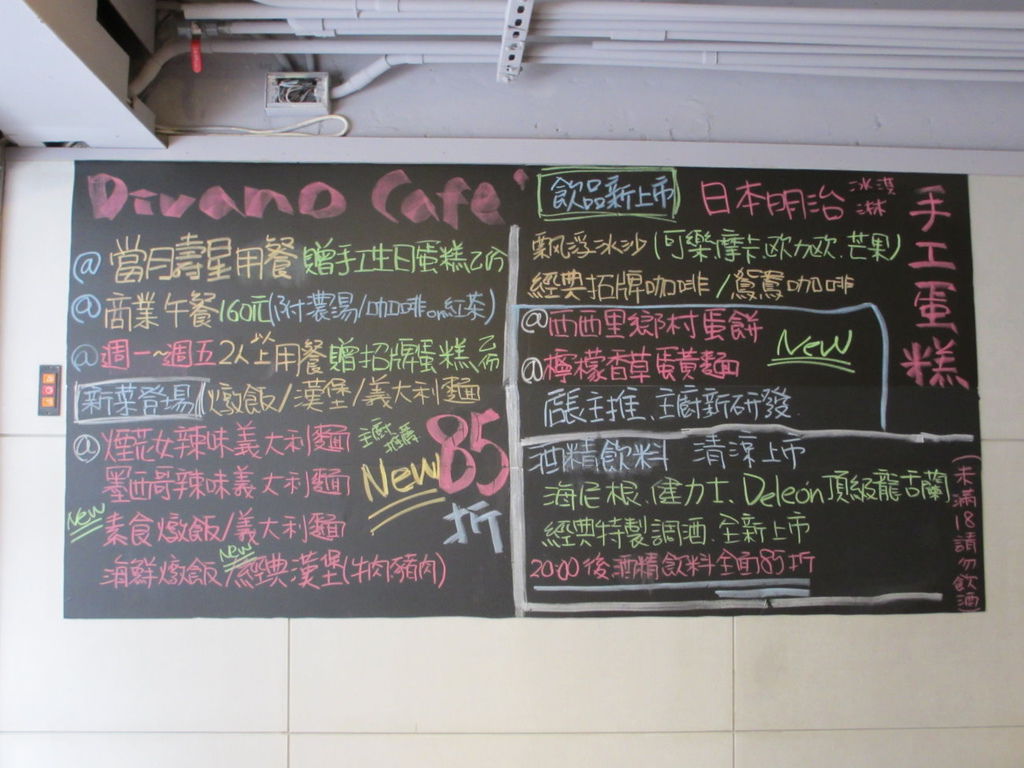 Divano Café
@ 當月壽星用餐 贈手工生日蛋糕乙份
@ 商業午餐 160元(附濃湯/咖啡or紅茶)
@ 週一~週五 2人以上用餐 贈招牌蛋糕乙份
新菜登場 燉飯/漢堡/義大利麵
@ 煙花女辣味義大利麵 主廚推薦
墨西哥辣味義大利麵 New 85折
New 素食燉飯/義大利麵
海鮮燉飯/New 經典漢堡(牛肉豬肉)
飲品新上市 日本明治 冰淇淋
飄浮冰沙(可樂.摩卡.欧力欧.芒果)
經典招牌咖啡/鴛鴦咖啡
@ 西西里鄉村蛋餅
@ 檸檬香草蛋黃麵 New
店長主推、主廚新研發.
手工蛋糕
酒精飲料 清涼上市
海尼根、健力士、Deleón頂級龍舌蘭
經典特製調酒.全新上市
20:00後酒精飲料全面85折
(未滿18請勿飲酒)